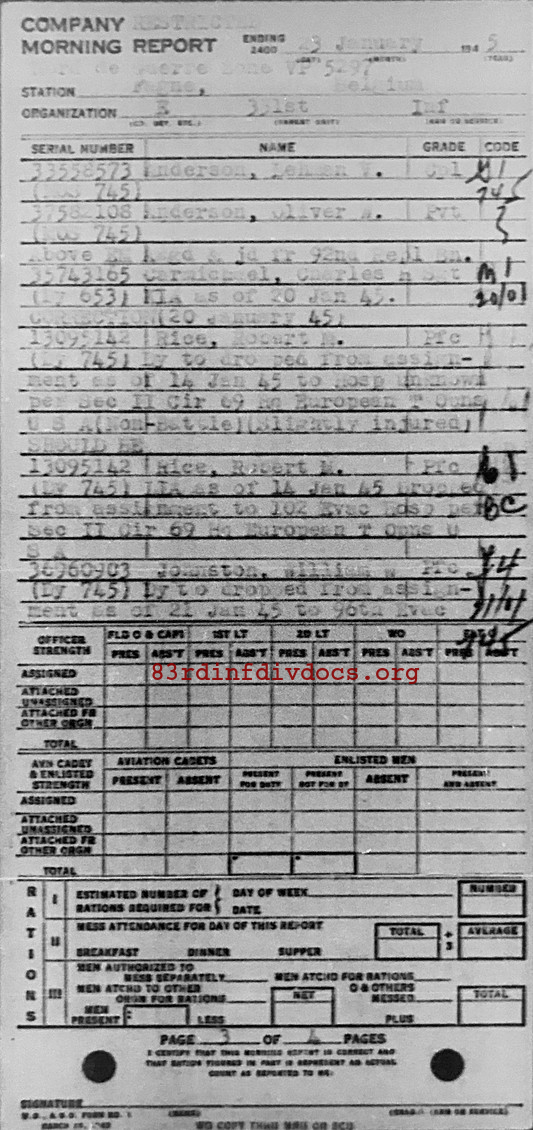 COMPANY RESTRICTED
MORNING REPORT ENDING 2400 23 January 1945
(DAY) (MONTH) (YEAR)
Nord de Guerre Zone VP 5297
STATION Fagne, Belgium
ORGANIZATION E 331st Inf
(CO. DET. ETC.) (PARENT UNIT) (ARM OR SERVICE)
SERIAL NUMBER NAME GRADE CODE
33558573 Anderson, Lehman V. Cpl
(MOS 745) 745
37582108 Anderson, Oliver W. Pvt
(MOS 745)
Above EM Asgd & jd fr 92nd Repl Bn.
35743165 Carmichael, Charles H Sgt M 1
(Dy 653) KIA as of 20 Jan 45. 20/01
CORRECTION(20 January 45)
13095142 Rice, Robert M. Pfc
(Dy 745) Dy to dropped from assign-
ment as of 14 Jan 45 to Hosp unknown
per Sec II Cir 69 Hq European T Opns
U S A(Non-Battle)(Slightly injured)
SHOULD BE
13095142 Rice, Robert M. Pfc
(Dy 745) LIA as of 14 Jan 45 Dropped
from assignment to 102 Evac Hosp per BC
Sec II Cir 69 Hq European T Opns U
S A
36960903 Johnston, William W Pfc
(Dy 745) Dy to dropped from assign-
ment as of 21 Jan 45 to 96th Evac
OFFICER STRENGTH FLD O & CAPT 1ST LT 2D LT WO
PRES ABS'T PRES ABS'T PRES ABS'T PRES ABS'T PRES ABS'T
ASSIGNED
83rdinfdivdocs.org
ATTACHED UNASSIGNED
ATTACHED FR OTHER ORGN
TOTAL
AVN CADET & ENLISTED STRENGTH AVIATION CADETS ENLISTED MEN
PRESENT ABSENT PRESENT FOR DUTY PRESENT NOT FOR DY ABSENT PRESENT AND ABSENT
ASSIGNED
ATTACHED UNASSIGNED
ATTACHED FR OTHER ORGN
TOTAL
RATIONS
I ESTIMATED NUMBER OF RATIONS REQUIRED FOR DAY OF WEEK DATE NUMBER
II MESS ATTENDANCE FOR DAY OF THIS REPORT TOTAL ÷ 3 AVERAGE
BREAKFAST DINNER SUPPER
III MEN AUTHORIZED TO MESS SEPARATELY MEN ATCHD FOR RATIONS
MEN ATCHD TO OTHER ORGN FOR RATIONS NET O & OTHERS MESSED TOTAL
MEN PRESENT LESS PLUS
PAGE 3 OF 4 PAGES
I CERTIFY THAT THIS MORNING REPORT IS CORRECT AND
THAT RATION FIGURES IN PART III REPRESENT AN ACTUAL
COUNT AS REPORTED TO ME:
SIGNATURE
W.D., A.G.O. FORM NO. 1 (NAME) (GRADE) (ARM OR SERVICE)